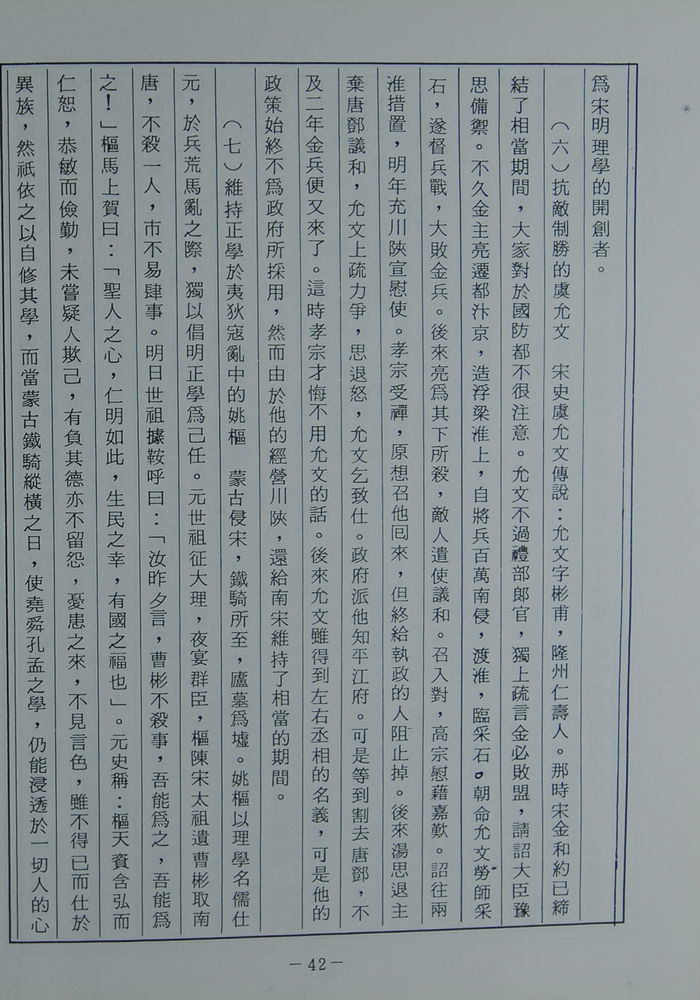 爲宋明理學的開創者。
（六）抗敵制勝的虞允文　宋史虞允文傳說：允文字彬甫，隆州仁壽人。那時宋金和約已締
結了相當期間，大家對於國防都不很注意。允文不過禮部郎官，獨上疏言金必敗盟，請詔大臣豫
思備禦。不久金主亮遷都汴京，造浮梁淮上，自將兵百萬南侵，渡淮，臨采石。朝命允文勞師采
石，遂督兵戰，大敗金兵。後來亮爲其下所殺，敵人遣使議和。召入對，高宗慰藉嘉歎。詔往兩
淮措置，明年充川陝宣慰使。孝宗受禪，原想召他囘來，但終給執政的人阻止掉。後來湯思退主
棄唐鄧議和，允文上疏力爭，思退怒，允文乞致仕。政府派他知平江府。可是等到割去唐鄧，不
及二年金兵便又來了。這時孝宗才悔不用允文的話。後來允文雖得到左右丞相的名義，可是他的
政策始終不爲政府所採用，然而由於他的經營川陝，還給南宋維持了相當的期間。
（七）維持正學於夷狄寇亂中的姚樞　蒙古侵宋，鐵騎所至，廬墓爲墟。姚樞以理學名儒仕
元，於兵荒馬亂之際，獨以倡明正學爲己任。元世祖征大理，夜宴群臣，樞陳宋太祖遺曹彬取南
唐，不殺一人，市不易肆事。明日世祖據鞍呼曰：「汝昨夕言，曹彬不殺事，吾能爲之，吾能爲
之！」樞馬上賀曰：「聖人之心，仁明如此，生民之幸，有國之福也」。元史稱：樞天資含弘而
仁恕，恭敏而儉勤，未嘗疑人欺己，有負其德亦不留怨，憂患之來，不見言色，雖不得已而仕於
異族，然祇依之以自修其學，而當蒙古鐵騎縱橫之日，使堯舜孔孟之學，仍能浸透於一切人的心
－42－